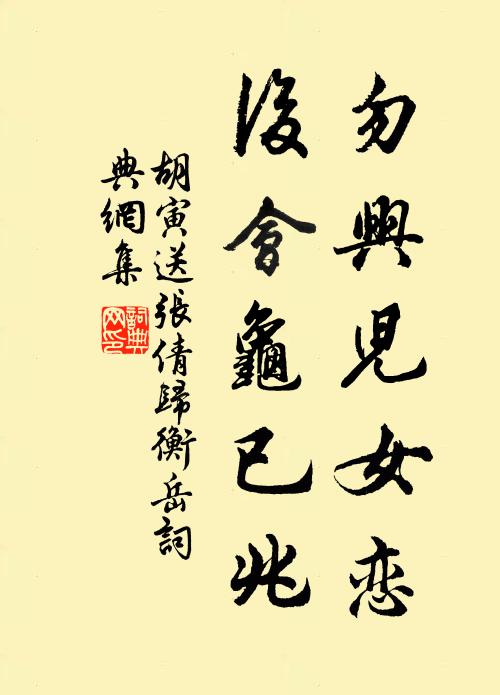 勿興児女恋
後會龜已兆
胡寅送張倩歸衡岳詞
典網集
詞典
网印